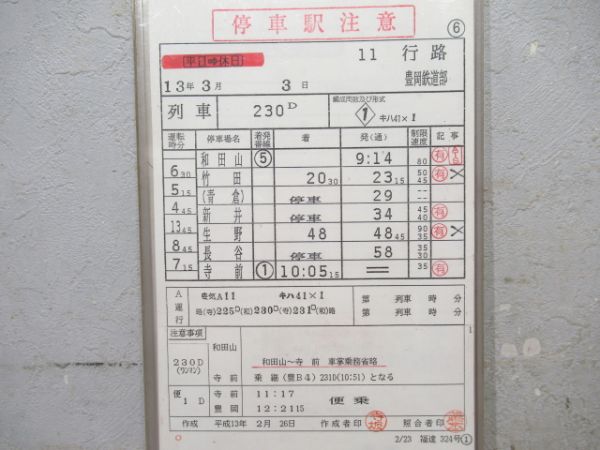 停車駅注意
⑥
平日⇔休日
11 行路
13年 3月 3日
豊岡鉄道部
列車 230D
編成両数及び形式
① キハ41×1
運転時分 停車場名 着発番線 着 発(通) 制限速度 記事
和田山 ⑤ 9:14 80 有
6 30
竹田 20 30 23 15 50 45 有 ×
5 15
(青倉) 停車 29 -- --
4 45
新井 停車 34 45 40 有
13 45
生野 48 48 45 90 35 有 ×
8 45
長谷 停車 58 35 30
7 15
寺前 ① 10:05 15 = 35 有
A運行
A11 キハ41×1
第 列車 時 分
略(寺)225D(和)230D(寺)231D(和)略
第 列車 時 分
注意事項
1
230D
(ワンマン)
和田山
和田山〜寺 前 車掌乗務省略
寺前 乗継(豊B4)231D(10:51)となる
便 1 D
寺前 11:17
豊岡 12:21 15
便乗
作成 平成13年 2月 26日 作成者印 照合者印
2/23 福達 324号①